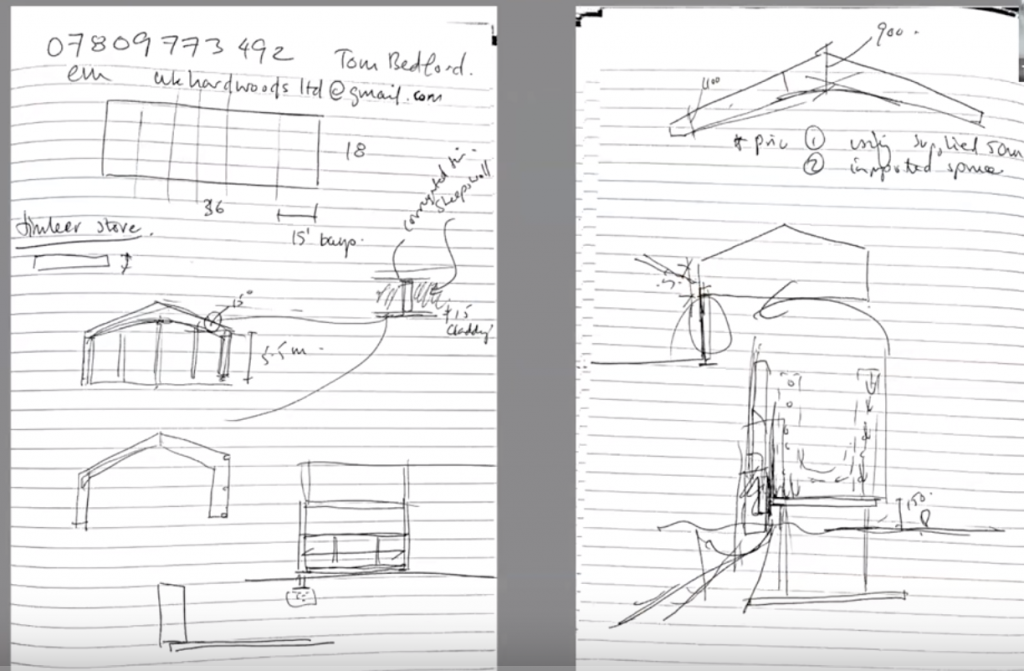 07809773492
Tom Bedford.
em ukhardwoodsltd@gmail.com
18
36
15' bays.
timber store.
corrugated tin.
sheepswool
15°
5.5 m
900.
400
① using supplied
② imported spruce
150.